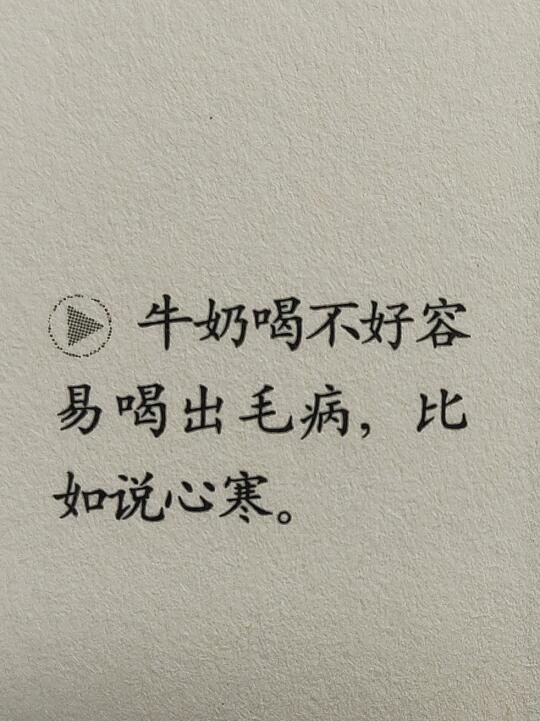 牛奶喝不好容
易喝出毛病，比
如说心寒。